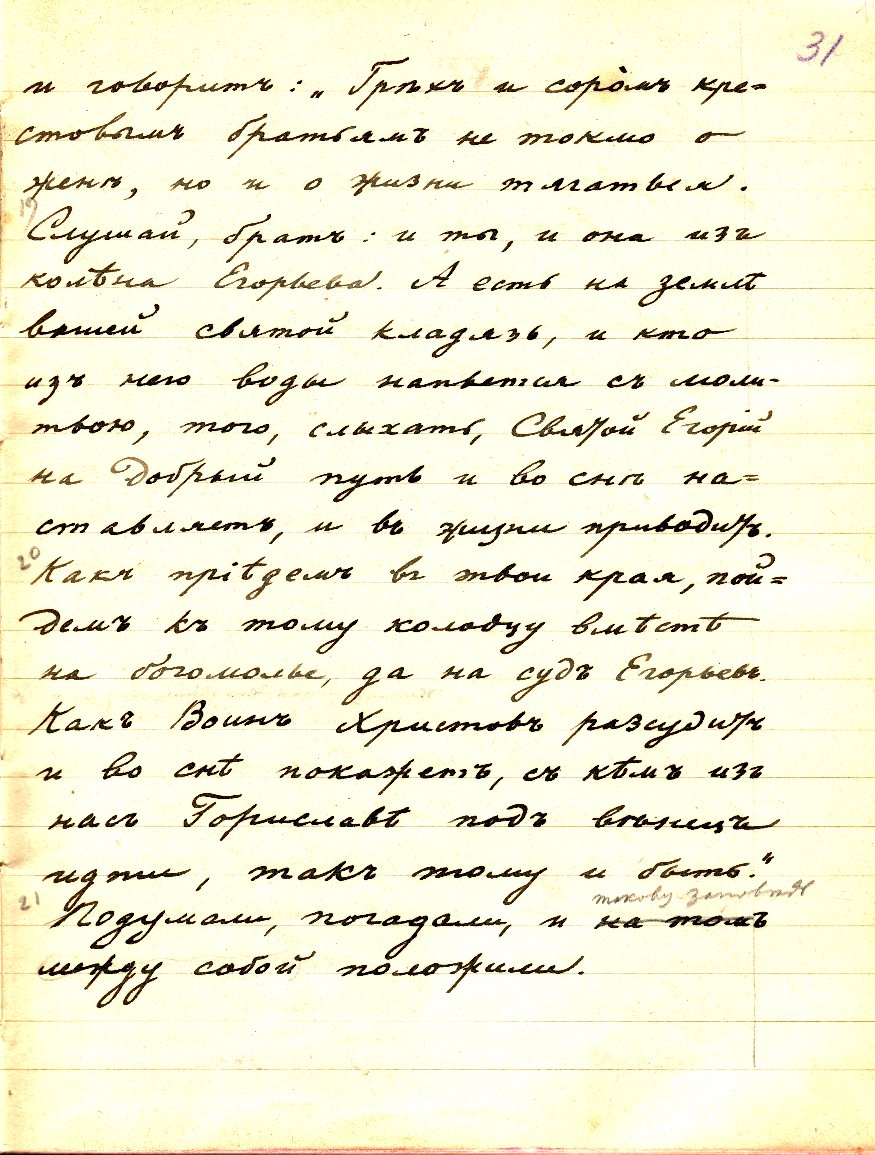 31
и говоритъ: „Грѣхъ и соромъ кре=
стовымъ братьямъ не токмо о
женѣ, но и о жизни тягаться.
19
Слушай, братъ: и ты, и она изъ
колѣна Егорьева. А есть на землѣ
вашей святой кладязь, и кто
изъ него воды напьется съ моли-
твою, того, слыхать, Святой Егорій
на добрый путь и во снѣ на=
ставляетъ, и въ жизни приводитъ.
20
Какъ пріѣдемъ въ твои края, пой=
демъ къ тому колодцу вмѣстѣ
на богомолье, да на судъ Егорьевъ.
Какъ Воинъ Христовъ разсудитъ
и во снѣ покажетъ, съ кѣмъ изъ
насъ Гориславѣ подъ вѣнецъ
идти, такъ тому и быть."
такову заповѣдь
21
Подумали, погадали, и на томъ
между собой положили.